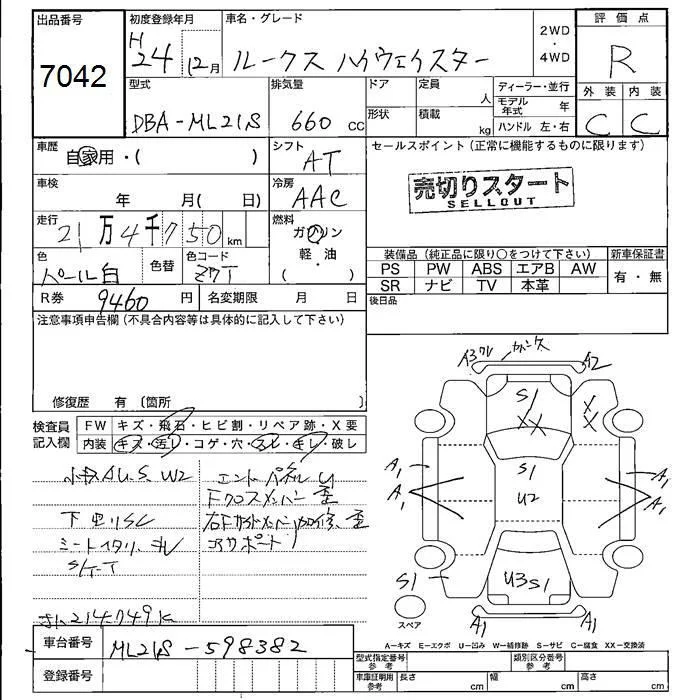 出品番号
7042
初度登録年月
H
24 12月
車名・グレード
ルークス ハイウェイスター
2WD
・
4WD
評価点
R
型式
DBA-ML21S
排気量
660 CC
ドア
形状
定員
人
積載
kg
ディーラー・並行
モデル
年式 年
ハンドル 左・右
外装 内装
C C
車歴
自家用・( )
シフト
AT
セールスポイント(正常に機能するものに限ります)
売切りスタート
SELLOUT
車検
年 月( 日)
冷房
AAC
走行
21万4千750km
燃料
ガソリン
軽・油
( )
色
パール白
色替
色コード
Z7T
装備品(純正品に限り○をつけて下さい)
新車保証書
PS PW ABS エアB AW
SR ナビ TV 本革
有・無
R券 9460円
名変期限 月 日
後日品
注意事項申告欄(不具合内容等は具体的に記入して下さい)
修復歴 有〔箇所 〕
検査員
記入欄
FW キズ・飛石・ヒビ割・リペア跡・X要
内装 キズ・汚れ・コゲ・穴・スレ・キレ・破レ
小キズAU.S.W2
下廻りSC
シートイタリ.
S/T-T
214749K
エンドパネルU
Fクロスメンバー歪
右Fサイドメンバー加修、歪
コアサポート
A3 ワレ
A2
S1
XX
X
X
A1
A1
S1
U2
A1
A1
S1
U3S1
A1
A1
スペア
A-キズ E-エクボ U-凹み W-補修跡 S-サビ C-腐食 XX-交換済
車台番号
ML21S-598382
登録番号
型式指定番号
参考
類別区分番号
参考
車庫証明用
参考
長さ cm
幅 cm
高さ cm